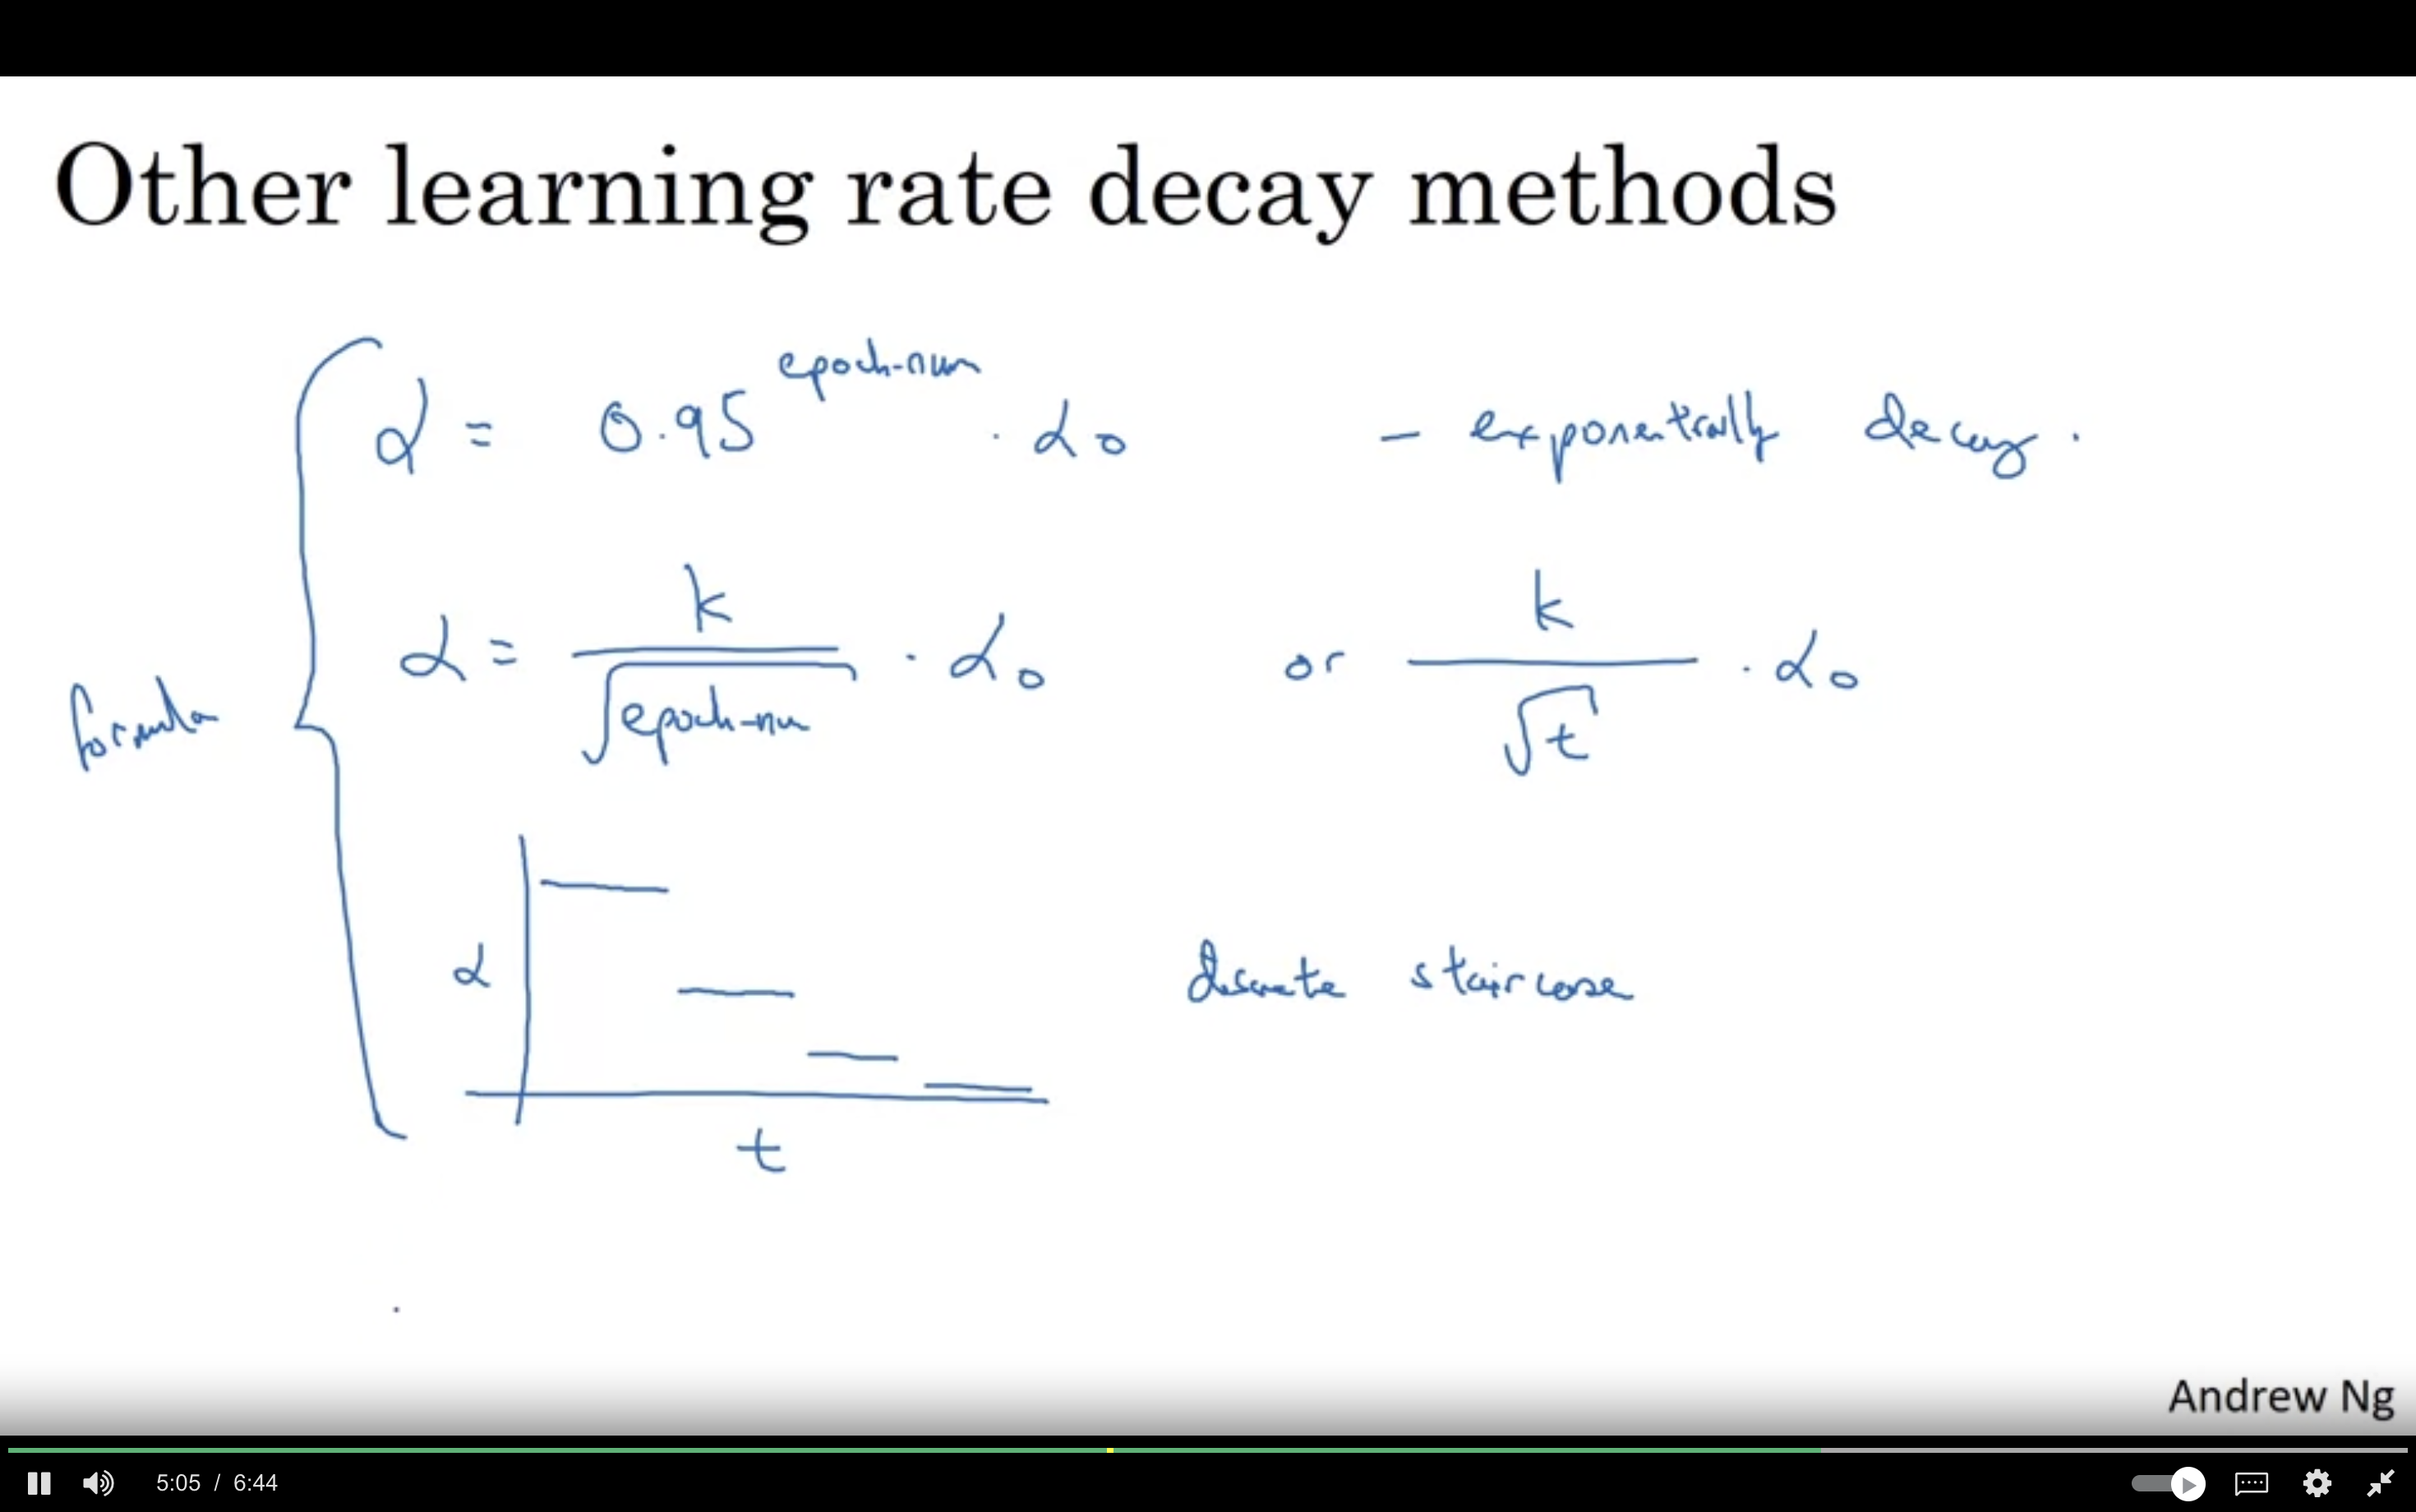 Other learning rate decay methods
α = 0.95^epoch-num · α₀ – exponentially decay.
formula
α = k / √epoch-num · α₀ or k / √t · α₀
α
discrete staircase
t
Andrew Ng
5:05 / 6:44